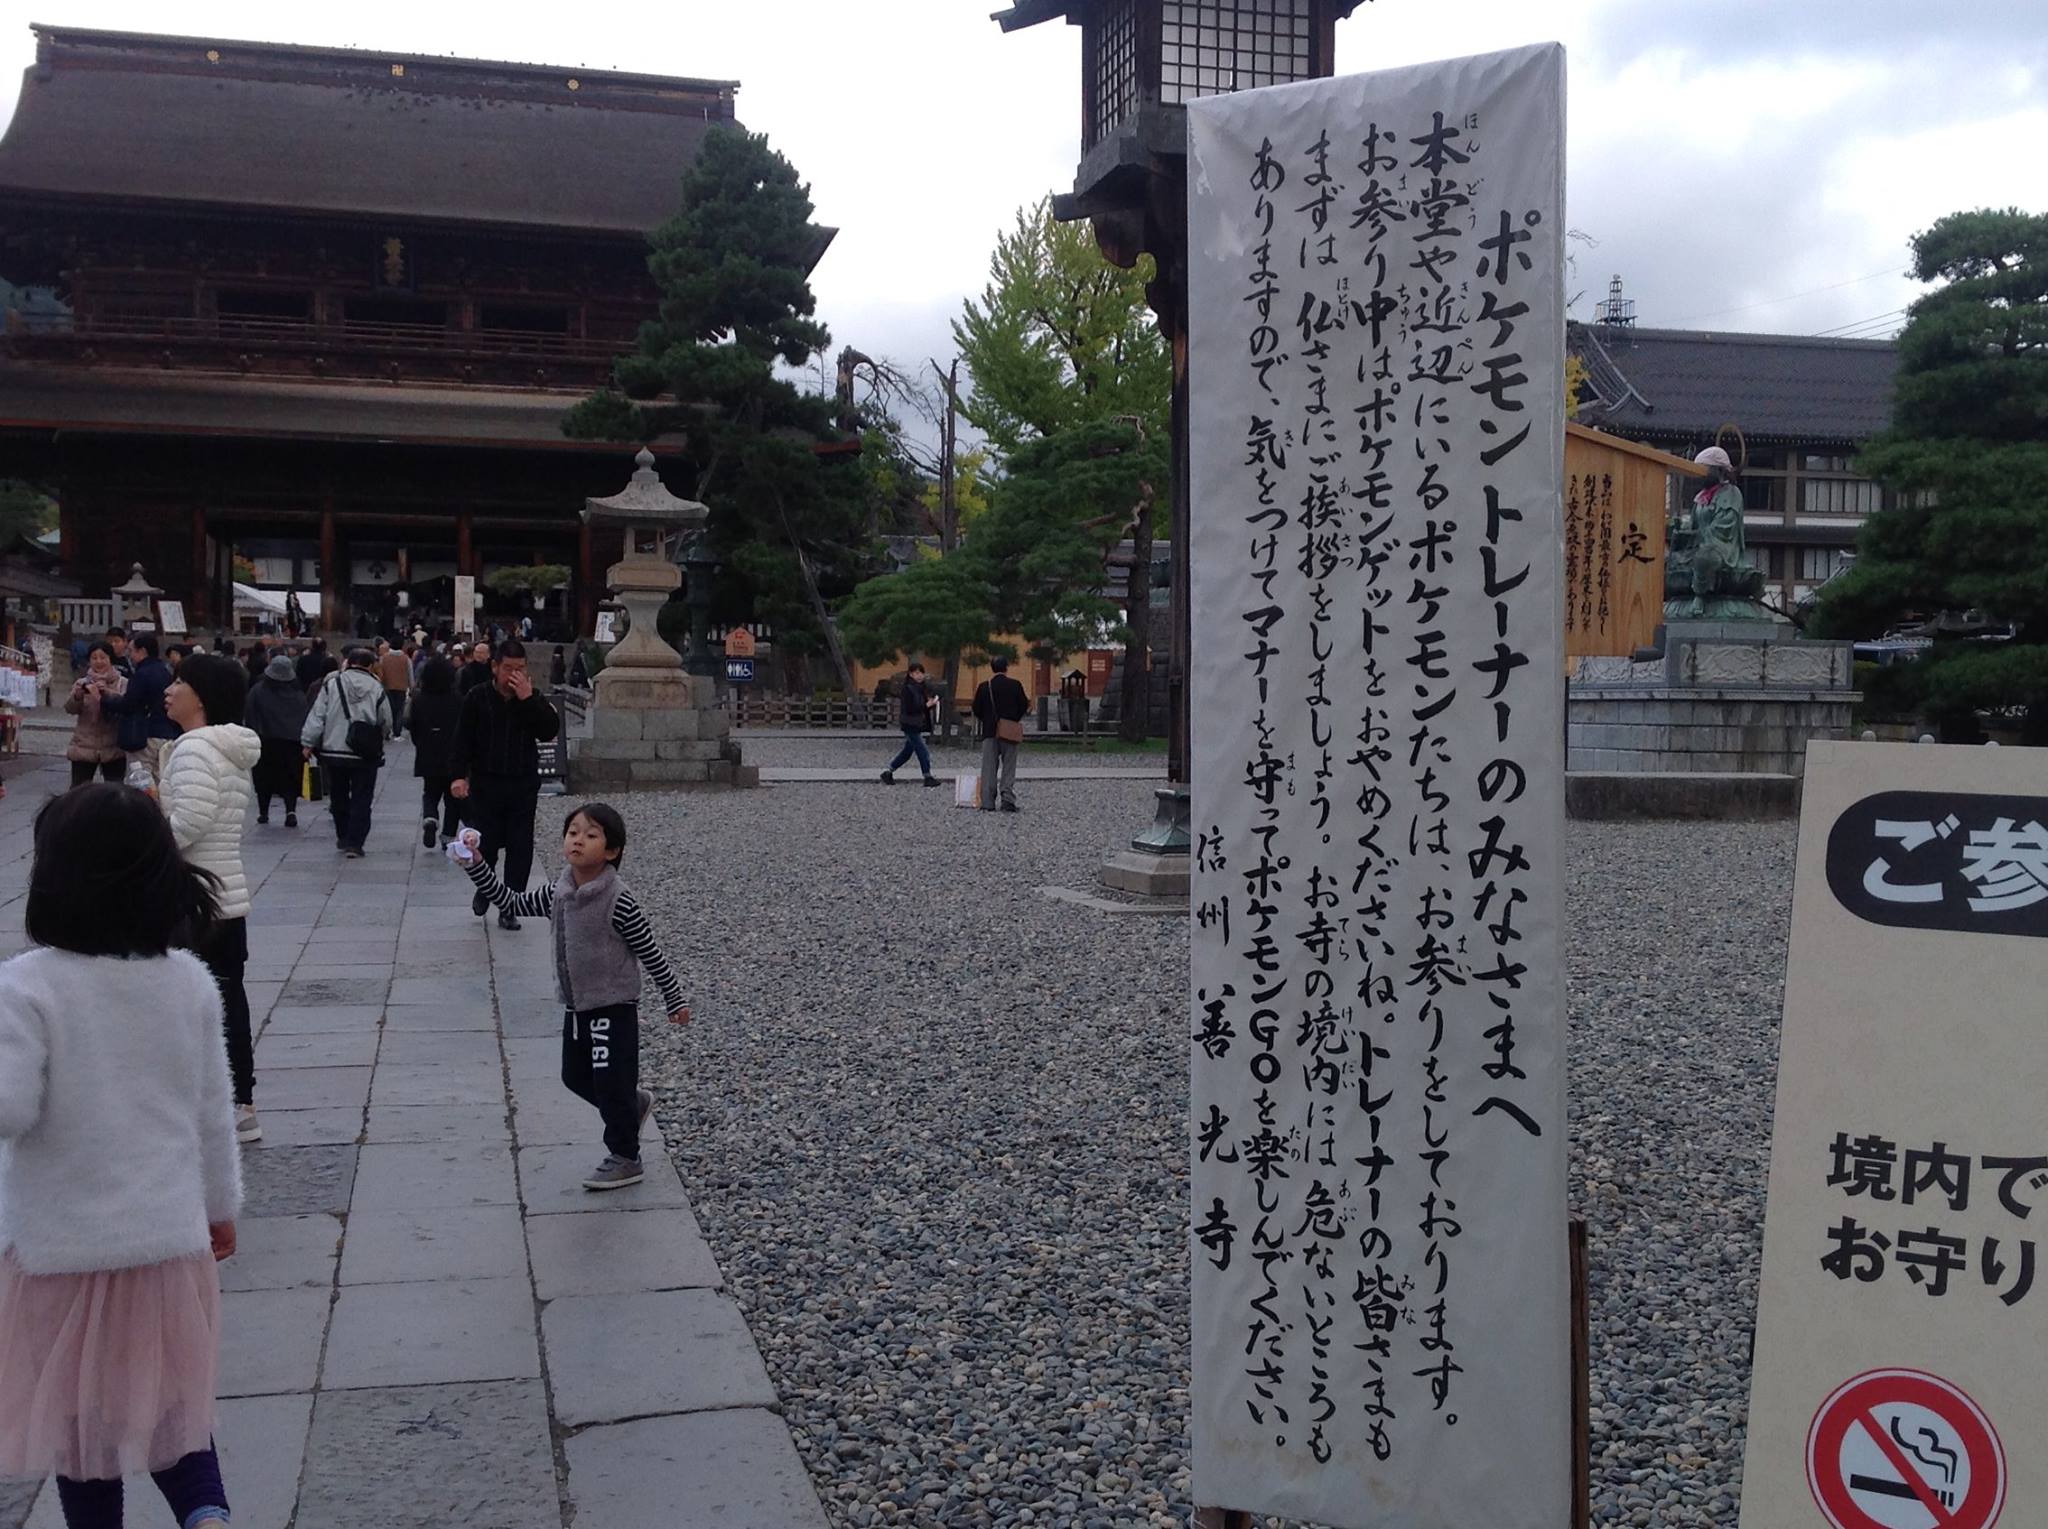 ポケモントレーナーのみなさまへ
本堂や近辺にいるポケモンたちは、お参りをしております。
お参り中はポケモンゲットをおやめくださいね。トレーナーの皆さまも
まずは仏さまにご挨拶をしましょう。お寺の境内には危ないところも
ありますので、気をつけてマナーを守ってポケモンGOを楽しんでください。
信州 善光寺
定
ご参
境内で
お守り
1976